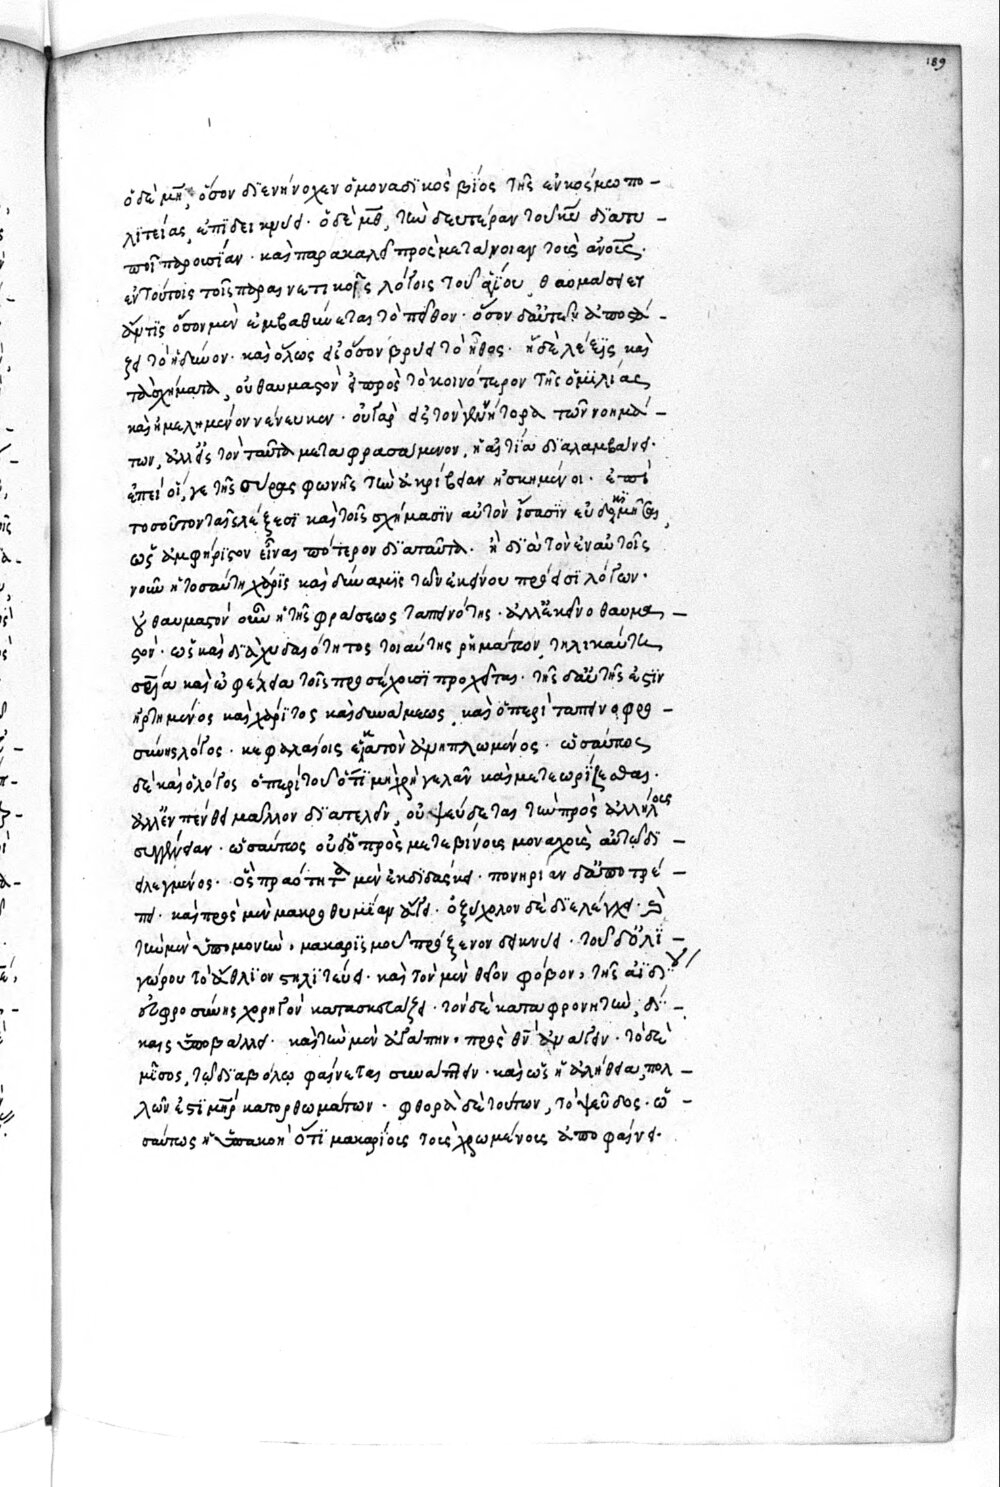 189
ὁ δὲ μη, ὅσον διενήνοχεν ὁ μοναδικὸς βίος τῆς ἐν κόσμω πο-
λιτείας, ἐπιδείκνυσι. ὁ δὲ μθ, τὴν δευτέραν τοῦ κυ διατυ-
ποῖ παρουσίαν. καὶ παρακαλεῖ πρὸς μετάνοιαν τοὺς ἀνους.
ἐν τούτοις τοῖς παραινετικοῖς λόγοις τοῦ ἁγίου, θαυμάσειεν
ἄν τις ὅσον μὲν ἐμβαθύνεται τὸ πάθον. ὅσον δ' αὐτῶν ἀποστά-
ζει τὸ ἡδύνον. καὶ ὅλως εἰς ὅσον βρύει τὸ ἦθος. ἡ δὲ λέξις καὶ
τὰ σχήματα, οὐ θαυμαστὸν εἰ πρὸς τὸ κοινότερον τῆς ὁμιλίας
καὶ ἠμελημένον νένευκεν. οὐ γὰρ εἰς τὸν γεννήτορα τῶν νοημά-
των, ἀλλ' εἰς τὸν ταῦτα μεταφρασάμενον, ἡ αἰτία διαλαμβάνει.
ἐπεὶ οἵ, γε τῆς σύρας φωνῆς τὴν ἀκρίβειαν ἠσκημένοι. ἐπὶ
τοσοῦτον ταῖς λέξεσι καὶ τοῖς σχήμασιν αὐτὸν ἴσασιν εὐδοκιμῆσαι,
ὡς ἀμφήριστον εἶναι πότερον διὰ ταῦτα. ἢ διὰ τὸν ἐν αὐτοῖς
νοῦν ἡ τοσαύτη χάρις καὶ δύναμις τῶν ἐκείνου πρόεισι λόγων.
οὐ θαυμαστὸν οὖν ἡ τῆς φράσεως ταπεινότης. ἀλλ' ἐκεῖνο θαυμα-
στόν. ὡς καὶ διὰ χυδαιότητος τοιαύτης ῥημάτων, τηλικαύτη
σρία καὶ ὠφέλεια τοῖς προσέχουσι προχεῖται. τῆς δ' αὐτῆς ἐστιν
ἠρτημένος καὶ χάριτος καὶ δυνάμεως, καὶ ὁ περὶ ταπεινοφρο-
σύνης λόγος. κεφαλαίοις ἑκατὸν ἀμηπλωμένος. ὡσαύτως
δὲ καὶ ὁ λόγος ὁ περὶ τοῦ ὅτι μὴ χρὴ γελᾶν καὶ μετεωρίζεσθαι.
ἀλλ' ἐν πένθει μᾶλλον διατελεῖν, οὐ ψεύδεται τὴν πρὸς ἀλλήλους
συγγένειαν. ὡσαύτως οὐδ' ὁ πρὸς μεταβίνους μοναχοὺς αὐτῶ δι-
ειλεγμένος. ὃς πραότητα μὲν ἐκδιδάσκει. πονηρίαν δ' ἀποτρέ-
πει. καὶ πρὸς μὲν μακροθυμίαν ἄγει. ὀξύχολον δὲ διελέγχει. καὶ
τὴν μὲν ὑπομονὴν, μακαρισμοῦ πρόξενον δείκνυσι. τοῦ δ' ὀλι-
γώρου τὸ ἄθλιον στηλιτεύει. καὶ τὸν μὲν θεῖον φόβον, τῆς ἀϊδίου
εὐφροσύνης χορηγὸν κατασκευάζει. τὸν δὲ καταφρονητὴν, δί-
καις ὑποβάλλει. καὶ τὴν μὲν ἀγάπην, πρὸς θν ἀνάγειν. τὸ δὲ
μῖσος, τῶ διαβόλω φαίνεται συνάπτειν. καὶ ὡς ἡ ἀλήθεια, πολ-
λῶν ἐστι μηρ κατορθωμάτων. φθορὰ δὲ τούτων, τὸ ψεῦδος. ὡ-
σαύτως ἡ ὑπακοὴ ὅτι μακαρίους τοὺς χρωμένους ἀποφαίνει.